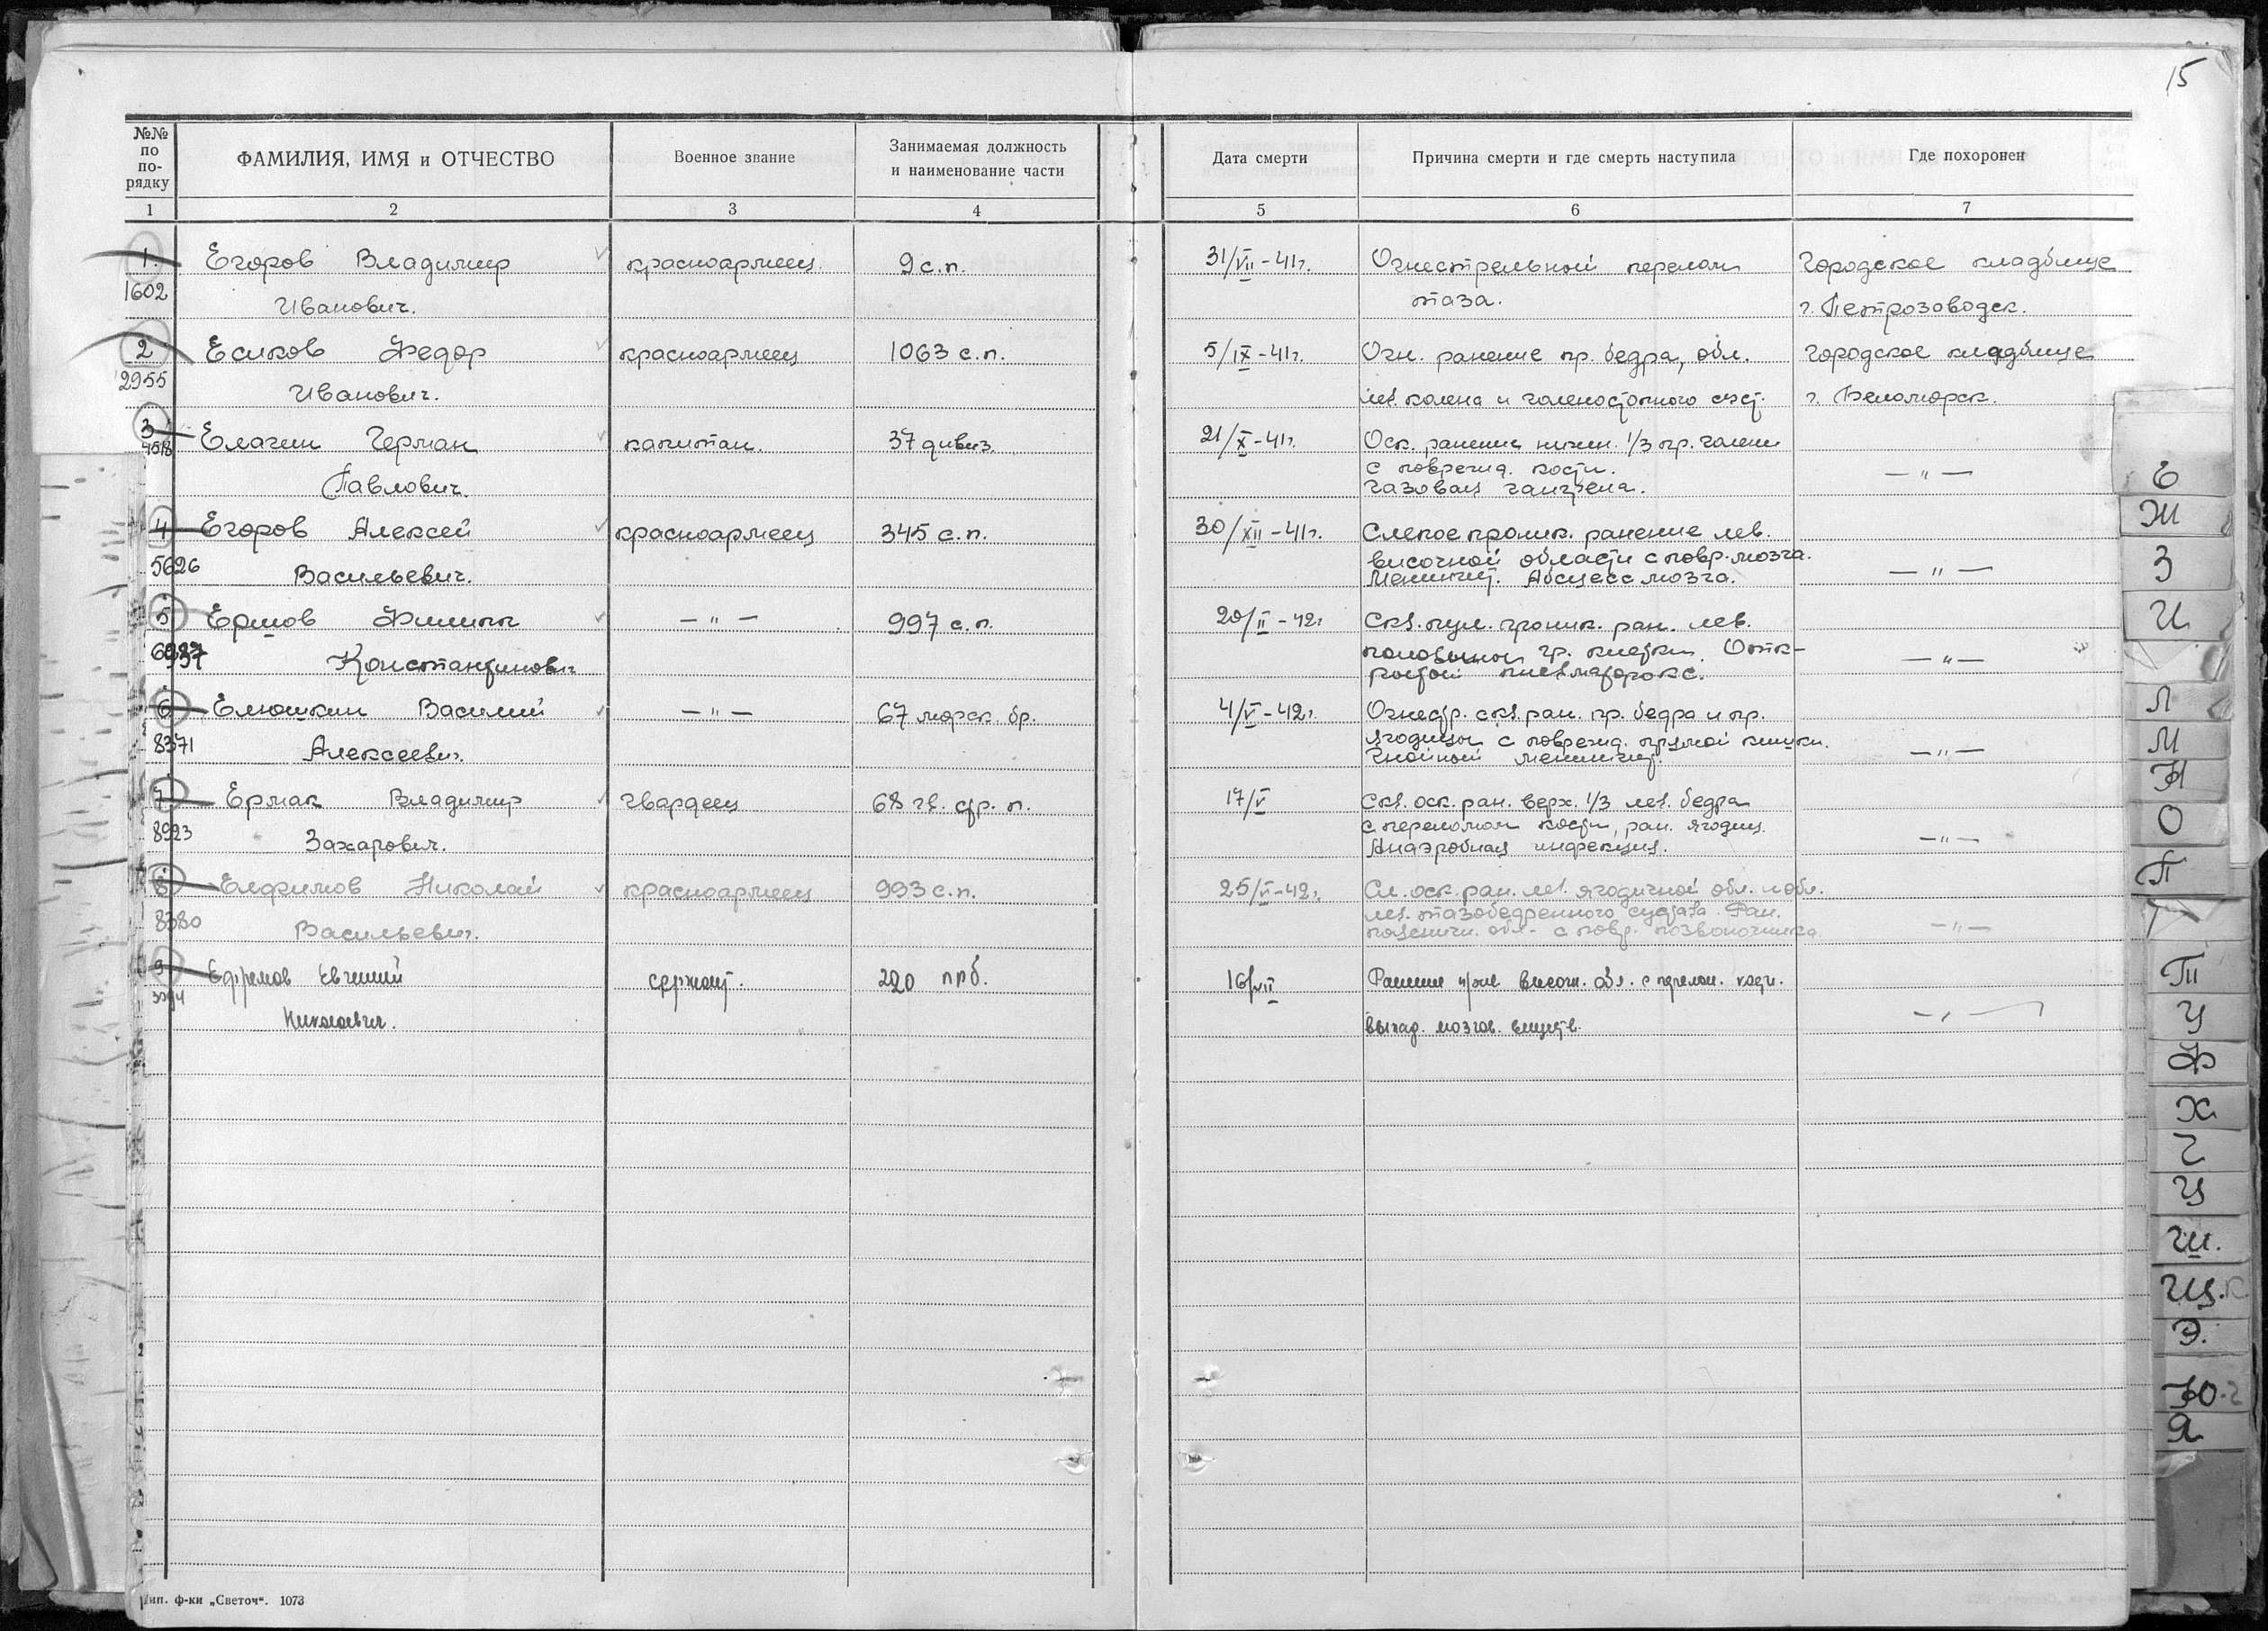 15
№№ по по-рядку
ФАМИЛИЯ, ИМЯ и ОТЧЕСТВО
Военное звание
Занимаемая должность и наименование части
Дата смерти
Причина смерти и где смерть наступила
Где похоронен
1 2 3 4 5 6 7
1. Егоров Владимир красноармеец. 9 с.п. 31/VII-41г. Огнестрельный перелом Городское кладбище
1602 Иванович. таза. г. Петрозоводск.
2 Есиков Федор красноармеец 1063 с.п. 5/IX-41г. Огн. ранение пр. бедра, обл. Городское кладбище
2955 Иванович. лев. колена и голеностопного суст. г. Беломорск.
3 Елагин Герман капитан. 37 дивиз. 21/X-41г. Оск. ранение нижн. 1/3 пр. голени
с поврежд. кости. — " —
Павлович. Газовая гангрена.
4 Егоров Алексей красноармеец 345 с.п. 30/XII-41г. Слепое проник. ранение лев.
5626 височной области с повр. мозга.
Васильевич. Менингит. Абсцесс мозга. — " —
5 Ершов Филипп — " — 997 с.п. 20/II-42г Скв. пул. проник. ран. лев.
половины гр. клетки. Отк-
Константинович рытый пневматорокс. — " —
6 Елюшкин Василий — " — 67 морск. бр. 4/V-42г. Огнестр. скв. ран. пр. бедра и пр.
8371 ягодицы с поврежд. прямой кишки.
Алексеевич. Гнойный менингит. — " —
7 Ермак Владимир гвардеец 68 гв. стр. п. 17/V Скв. оск. ран. верх. 1/3 лев. бедра
8923 с переломом кости, ран. ягодиц.
Захарович. Анаэробная инфекция. — " —
8 Елфимов Николай красноармеец 993 с.п. 25/VI-42г. Сл. оск. ран. лев. ягодичной обл. и обл.
8380 лев. тазобедренного сустава. Ран.
Васильевич. поясничн. обл. с повр. позвоночника. — " —
9 Ефремов Евгений сержант. 220 прб. 16/VII Ранение височн. обл. с перелом. кости.
Николаевич. выпад. мозгов. веществ. — " —
Е
Ж
З
И
Л
М
Н
О
П
Т
У
Ф
Х
Ц
Ш.
Щ.
Э.
Ю
Я
Тип. ф-ки „Светоч“. 1073